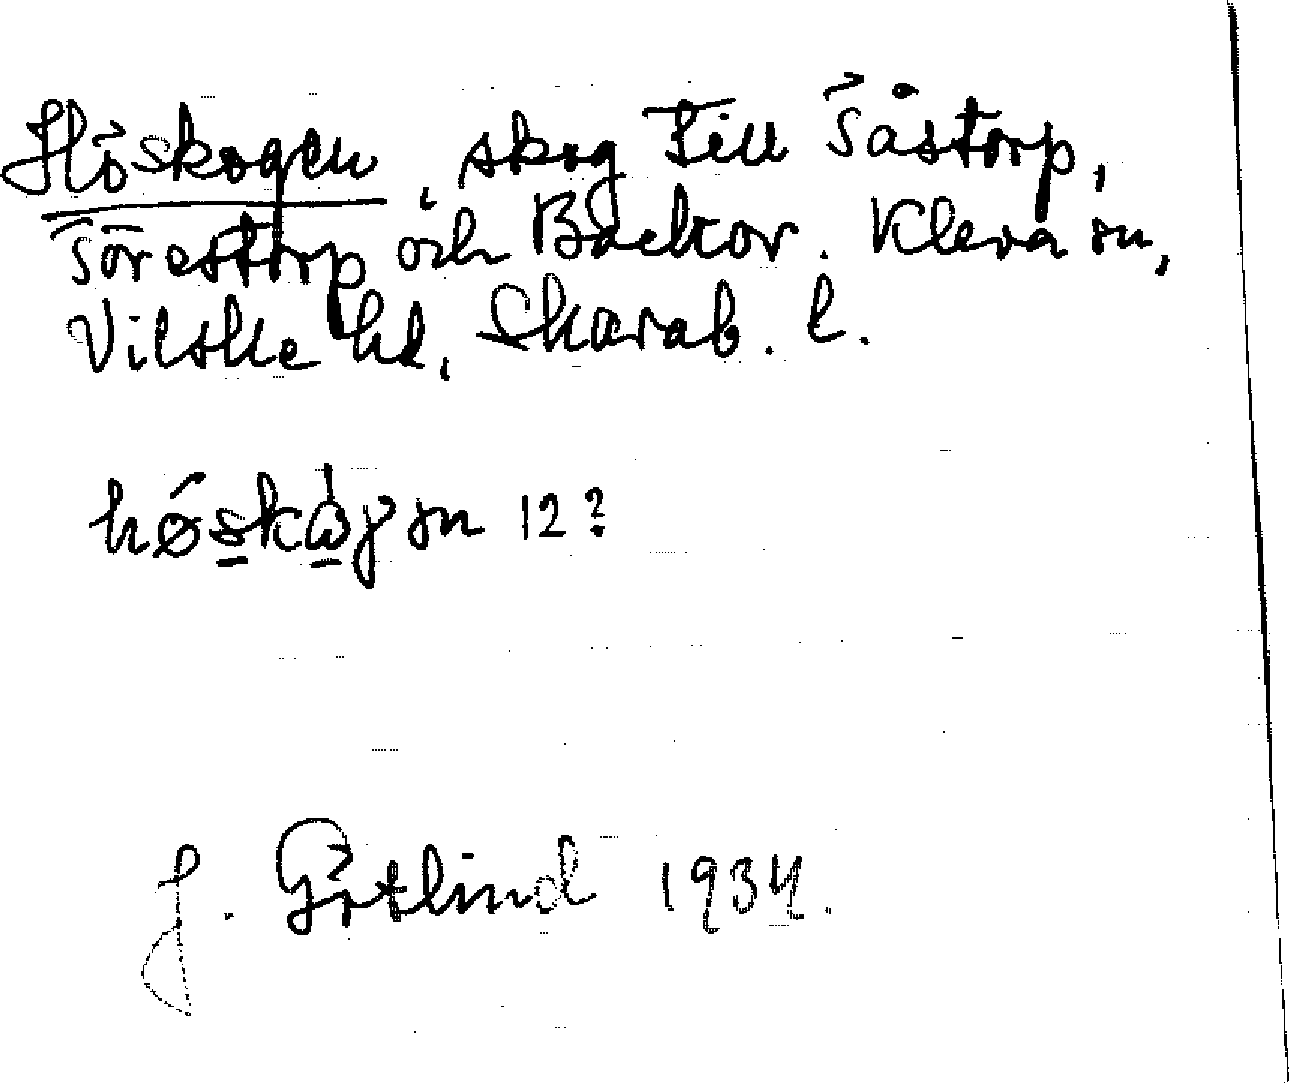 Höskogen, skog till Såstorp,
Sörestorp och Backor. Kleva sn,
Vilske hd, Skarab. l.
høskωgən 12?
J. Götlind 1934.